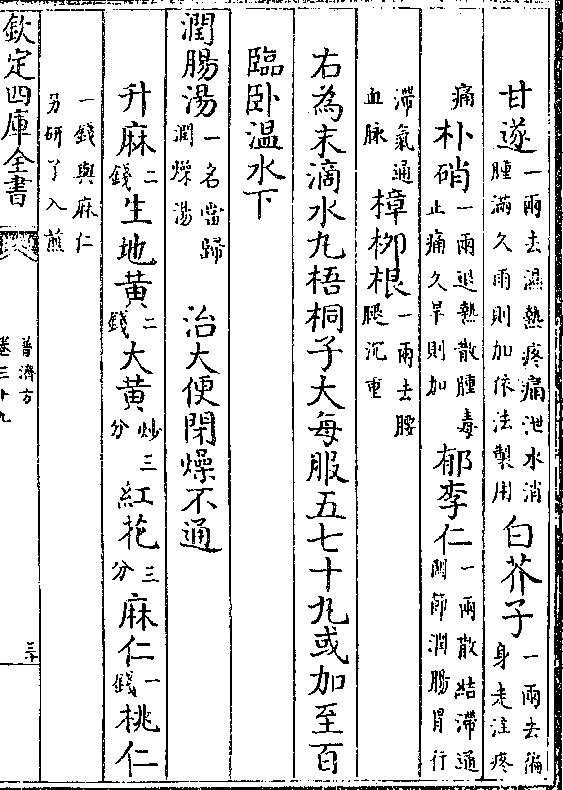 甘遂一兩去濕熱疼痛泄水消腫滿久雨則加依法製用白芥子一兩去徧身走注疼
痛朴硝一兩退熱散腫毒止痛久旱則加郁李仁一兩散結滯通關節潤腸胃行
滯氣通血脉樟柳根一兩去腰腿沉重
右為末滴水丸梧桐子大每服五七十丸或加至百
臨卧温水下
潤腸湯一名當歸潤燥湯 治大便閉燥不通
升麻二錢生地黄二錢大黄炒三分紅花三分麻仁一錢桃仁
一錢與麻仁另研了入煎
欽定四庫全書
普濟方
卷三十九